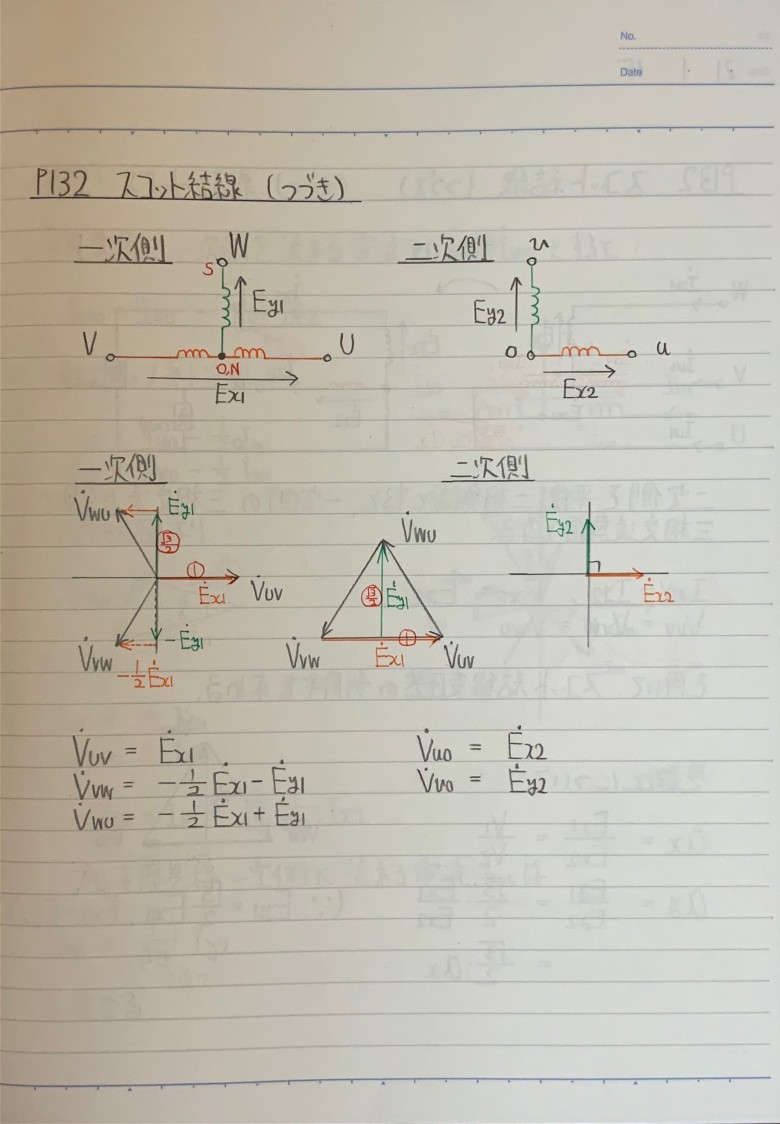 No.
Date
P132 スコット結線 (つづき)
一次側
W
S
Ey1
V
U
O,N
Ex1
二次側
v
Ey2
o
u
Ex2
一次側
V̇wu
Ėy1
√3/2
①
Ėx1
V̇uv
-Ėy1
V̇vw
-1/2 Ėx1
二次側
V̇wu
√3/2
Ėy1
①
V̇vw
Ėx1
V̇uv
Ėy2
Ėx2
V̇uv = Ėx1
V̇vw = -1/2 Ėx1 - Ėy1
V̇wu = -1/2 Ėx1 + Ėy1
V̇uo = Ėx2
V̇vo = Ėy2